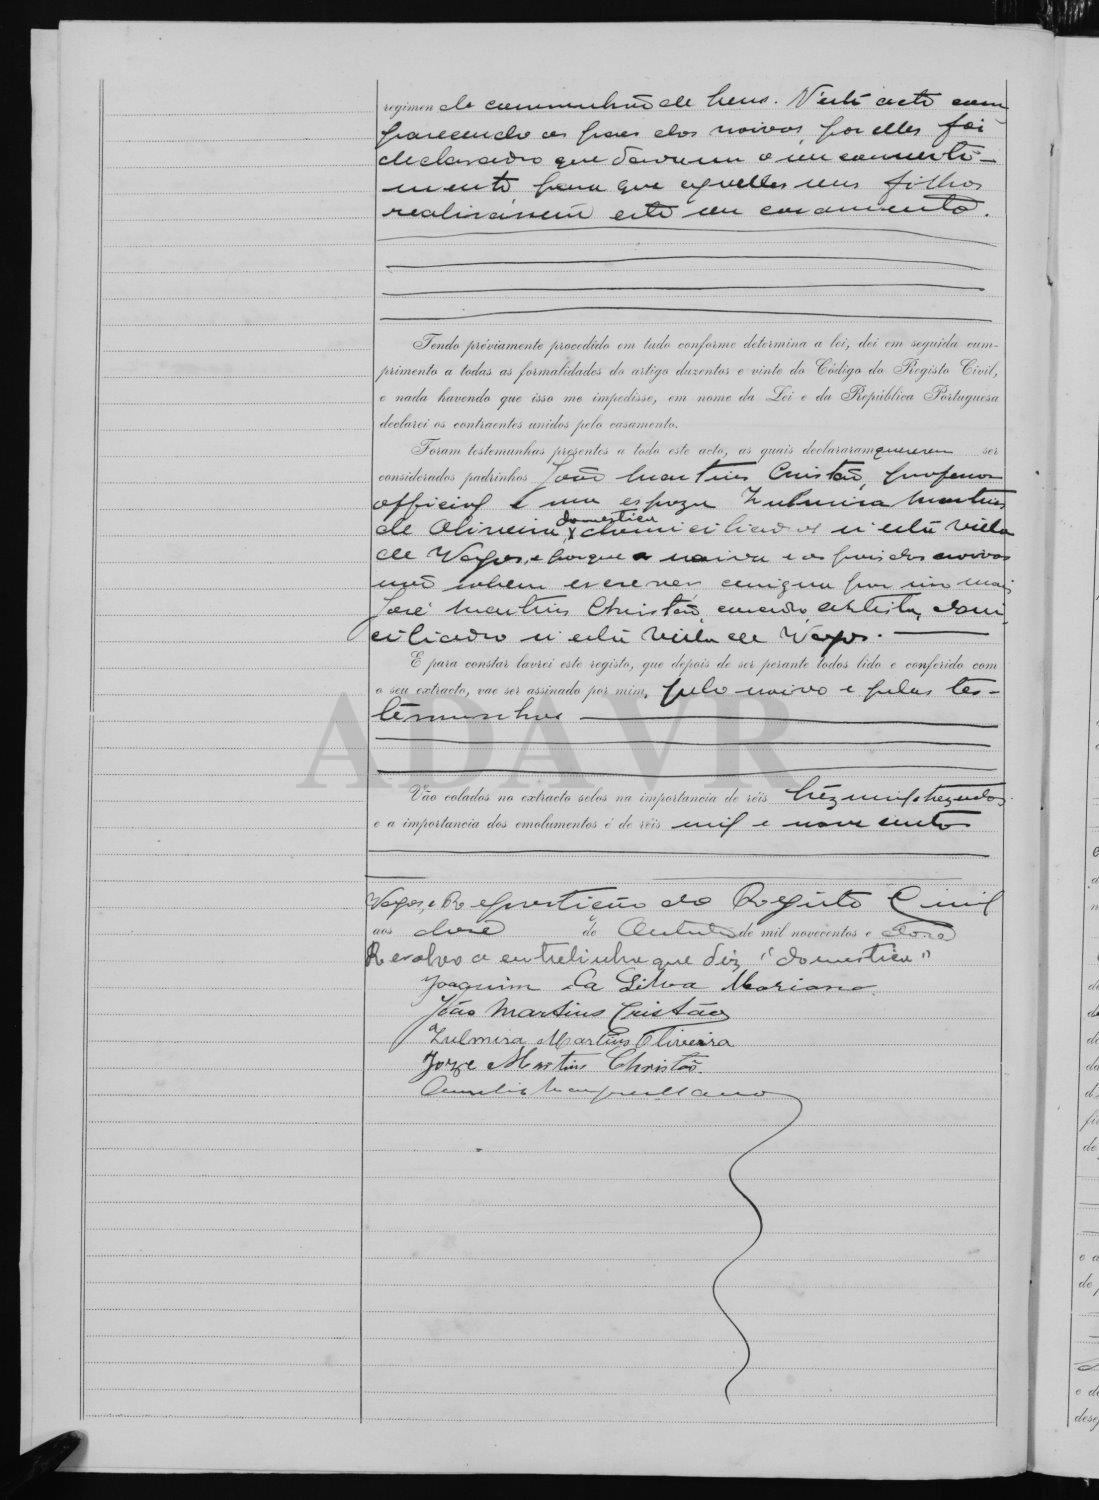 regimen de communhão de bens. N'este acto com
parecendo os paes dos noivos, por elles foi
declarado que davam o seu consenti-
mento para que aquelles seus filhos
realisássem este seu casamento.
Tendo préviamente procedido em tudo conforme determina a lei, dei em seguida cum-
primento a todas as formalidades do artigo duzentos e vinte do Código do Registo Civil,
e nada havendo que isso me impedisse, em nome da Lei e da República Portuguesa
declarei os contraentes unidos pelo casamento.
Foram testemunhas presentes a todo este acto, as quais declararam quererem ser
considerados padrinhos João Martins Cristão, professor
official e sua esposa Zulmira Martins
domestica
de Oliveira, domiciliados n'esta villa
de Vagos, e porque a noiva e os paes dos noivos
não sabem escrever, assigna por isso mais
José Martins Christão, casado, artista, domi
ciliado n'esta Villa de Vagos.
E para constar lavrei este registo, que depois de ser perante todos lido e conferido com
o seu extracto, vae ser assinado por mim, pelo noivo e pelas tes-
temunhas
ADAVR
Vão colados no extracto selos na importancia de réis trez mil e trezentos
e a importancia dos emolumentos é de réis mil e nove centos
Vagos, e Repartição do Registo Civil
aos doze de Outubro de mil novecentos e doze
Resalvo a entrelinha que diz "domestica"
Joaquim da Silva Mariano
João Martins Cristão
Zulmira Martins Oliveira
Jorze Martins Christão.